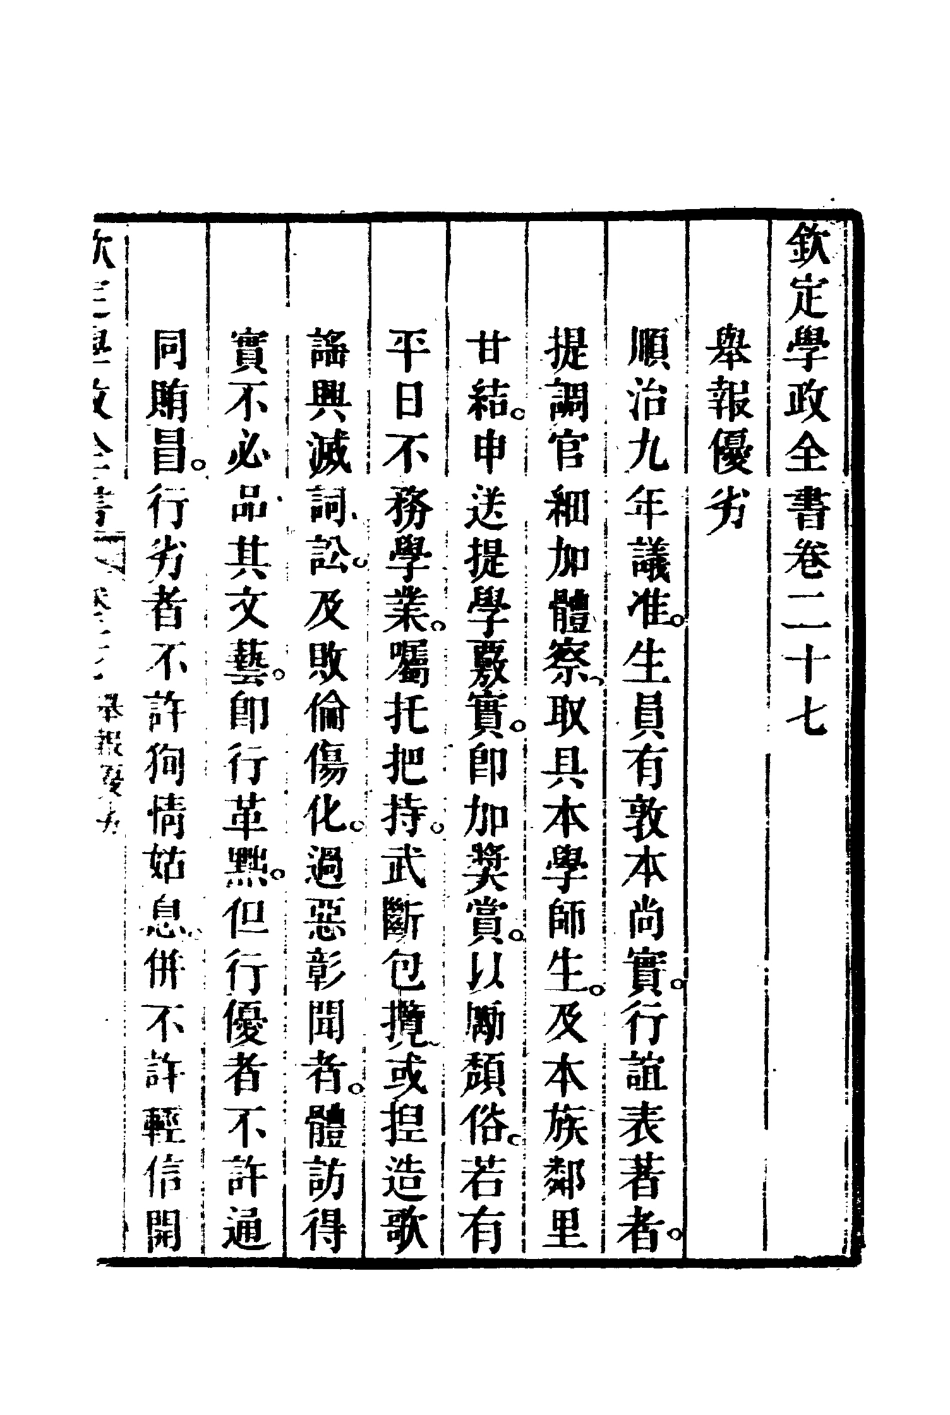 欽定學政全書卷二十七
舉報優劣
順治九年議准。生員有敦本尚實。行誼表著者。
提調官細加體察、取具本學師生。及本族鄰里
甘結。申送提學覈實。卽加奬賞。以勵頽俗。若有
平日不務學業。囑托把持。武斷包攬、或揑造歌
謠興滅詞訟。及敗倫傷化。過惡彰聞者。體訪得
實不必品其文藝。卽行革黜。但行優者不許通
同賄冒。行劣者不許狥情姑息、併不許輕信開
欽定學政全書 卷二十七 舉報優劣